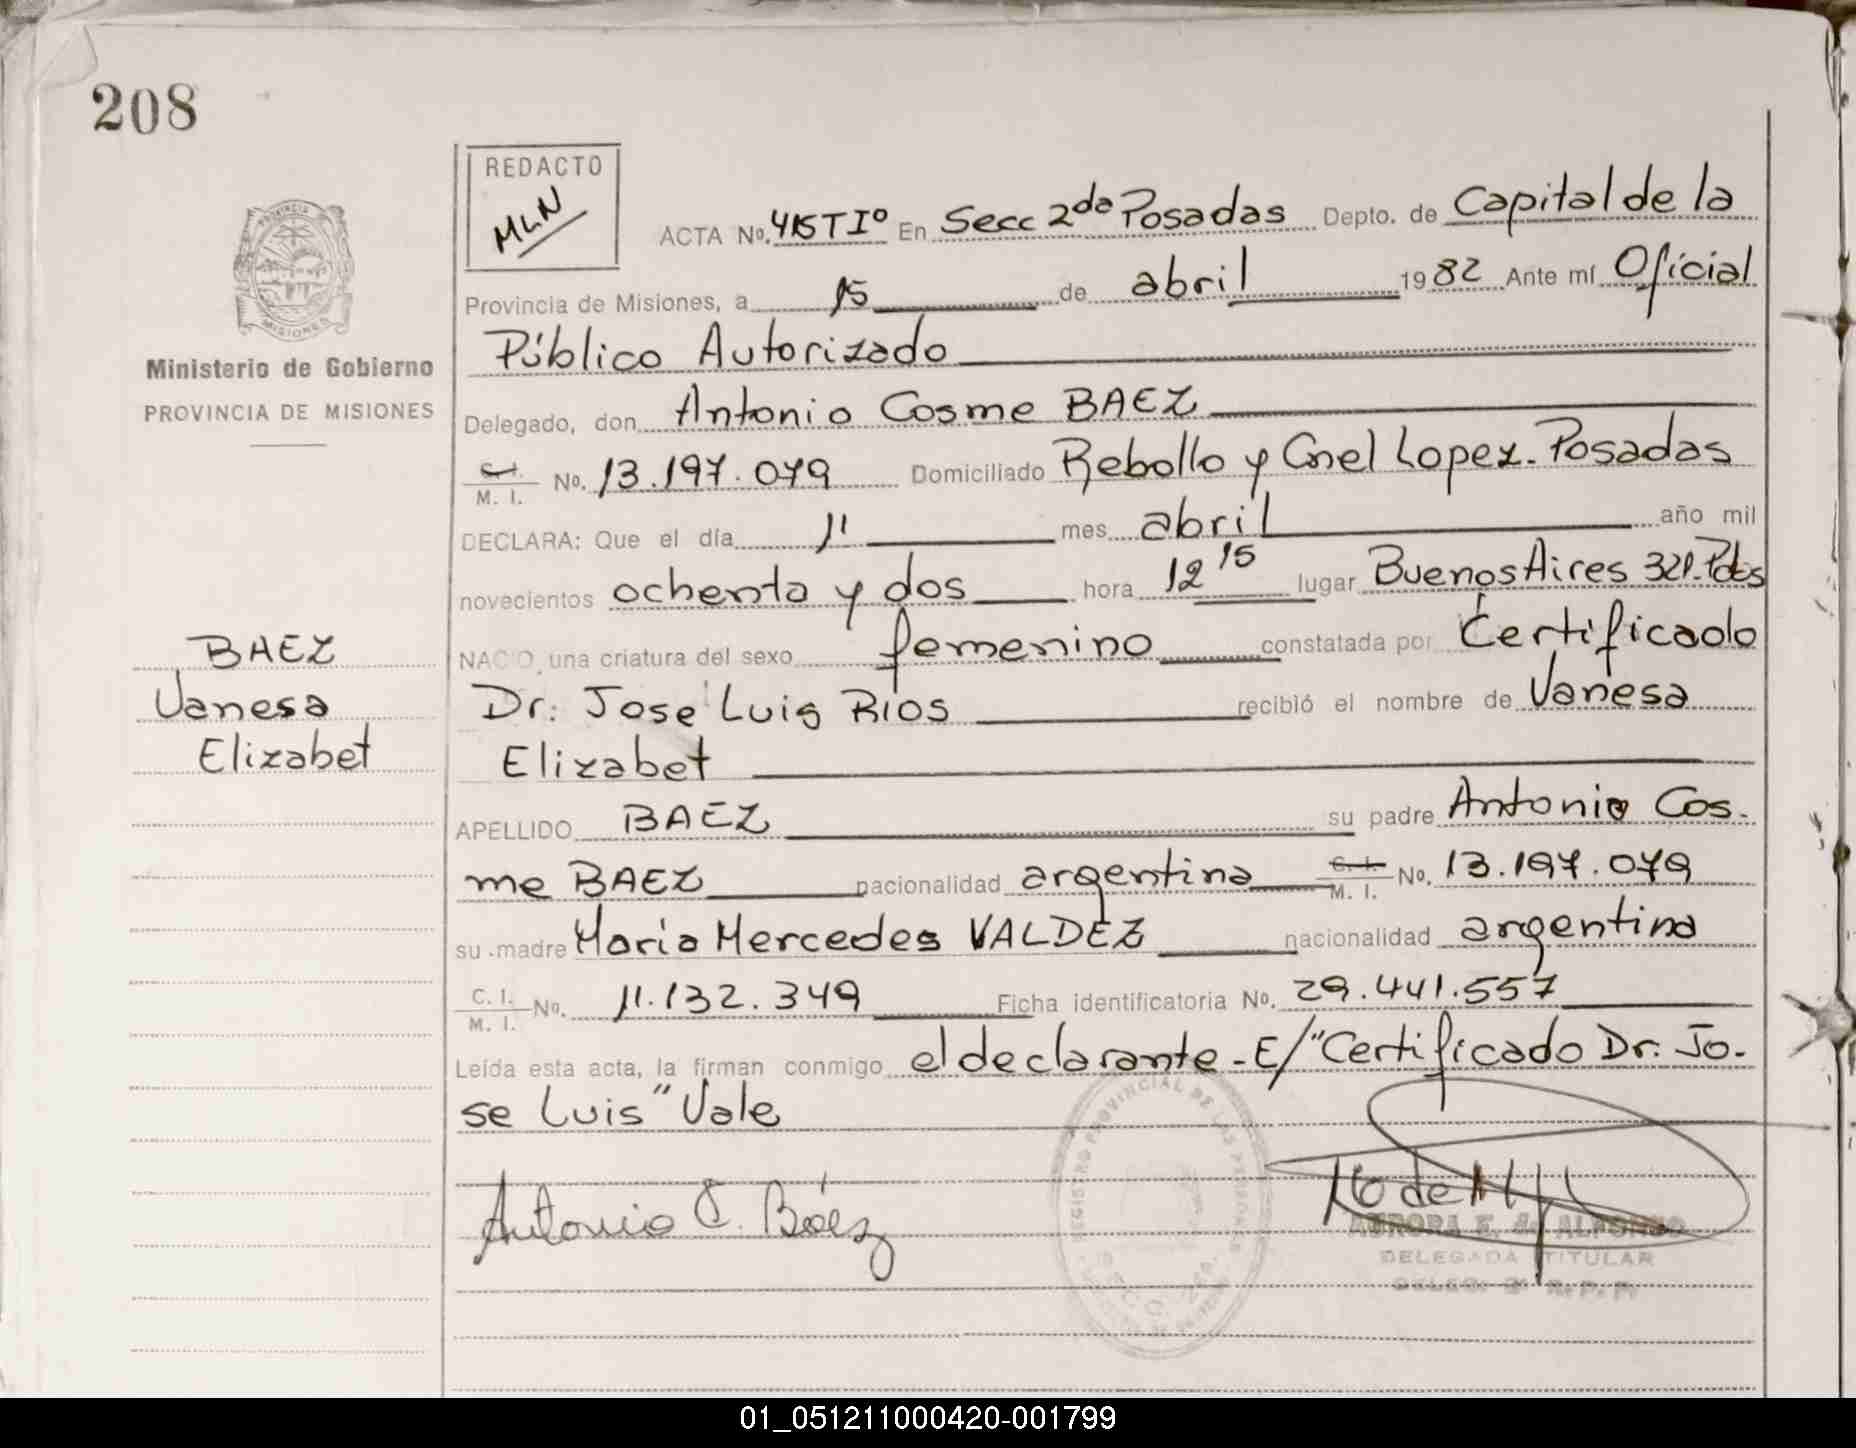 208
REDACTO
MLN
ACTA No. 415 TIº En Secc 2da Posadas Depto. de Capital de la
Provincia de Misiones, a 15 de abril 1982 Ante mí Oficial
Público Autorizado
PROVINCIA
MISIONES
Ministerio de Gobierno
PROVINCIA DE MISIONES
Delegado, don Antonio Cosme BAEZ
C.I.
M. I. No. 13.197.079 Domiciliado Rebollo y Cnel Lopez. Posadas
DECLARA: Que el día 11 mes abril año mil
novecientos ochenta y dos hora 12 15 lugar Buenos Aires 321. Pdas
NACIO una criatura del sexo femenino constatada por Certificado
Dr. Jose Luis RIOS recibió el nombre de Vanesa
Elizabet
BAEZ
Vanesa
Elizabet
APELLIDO BAEZ su padre Antonio Cos-
me BAEZ nacionalidad argentina C. I.
M. I. No. 13.197.079
su madre Maria Mercedes VALDEZ nacionalidad argentina
C. I.
M. I. No. 11.132.349 Ficha identificatoria No. 29.441.557
Leída esta acta, la firman conmigo el declarante - E/"Certificado Dr. Jo-
se Luis" Vale
Antonio C. Báez
REGISTRO PROVINCIAL DE LAS PERSONAS
DELEGADA TITULAR
01_051211000420-001799